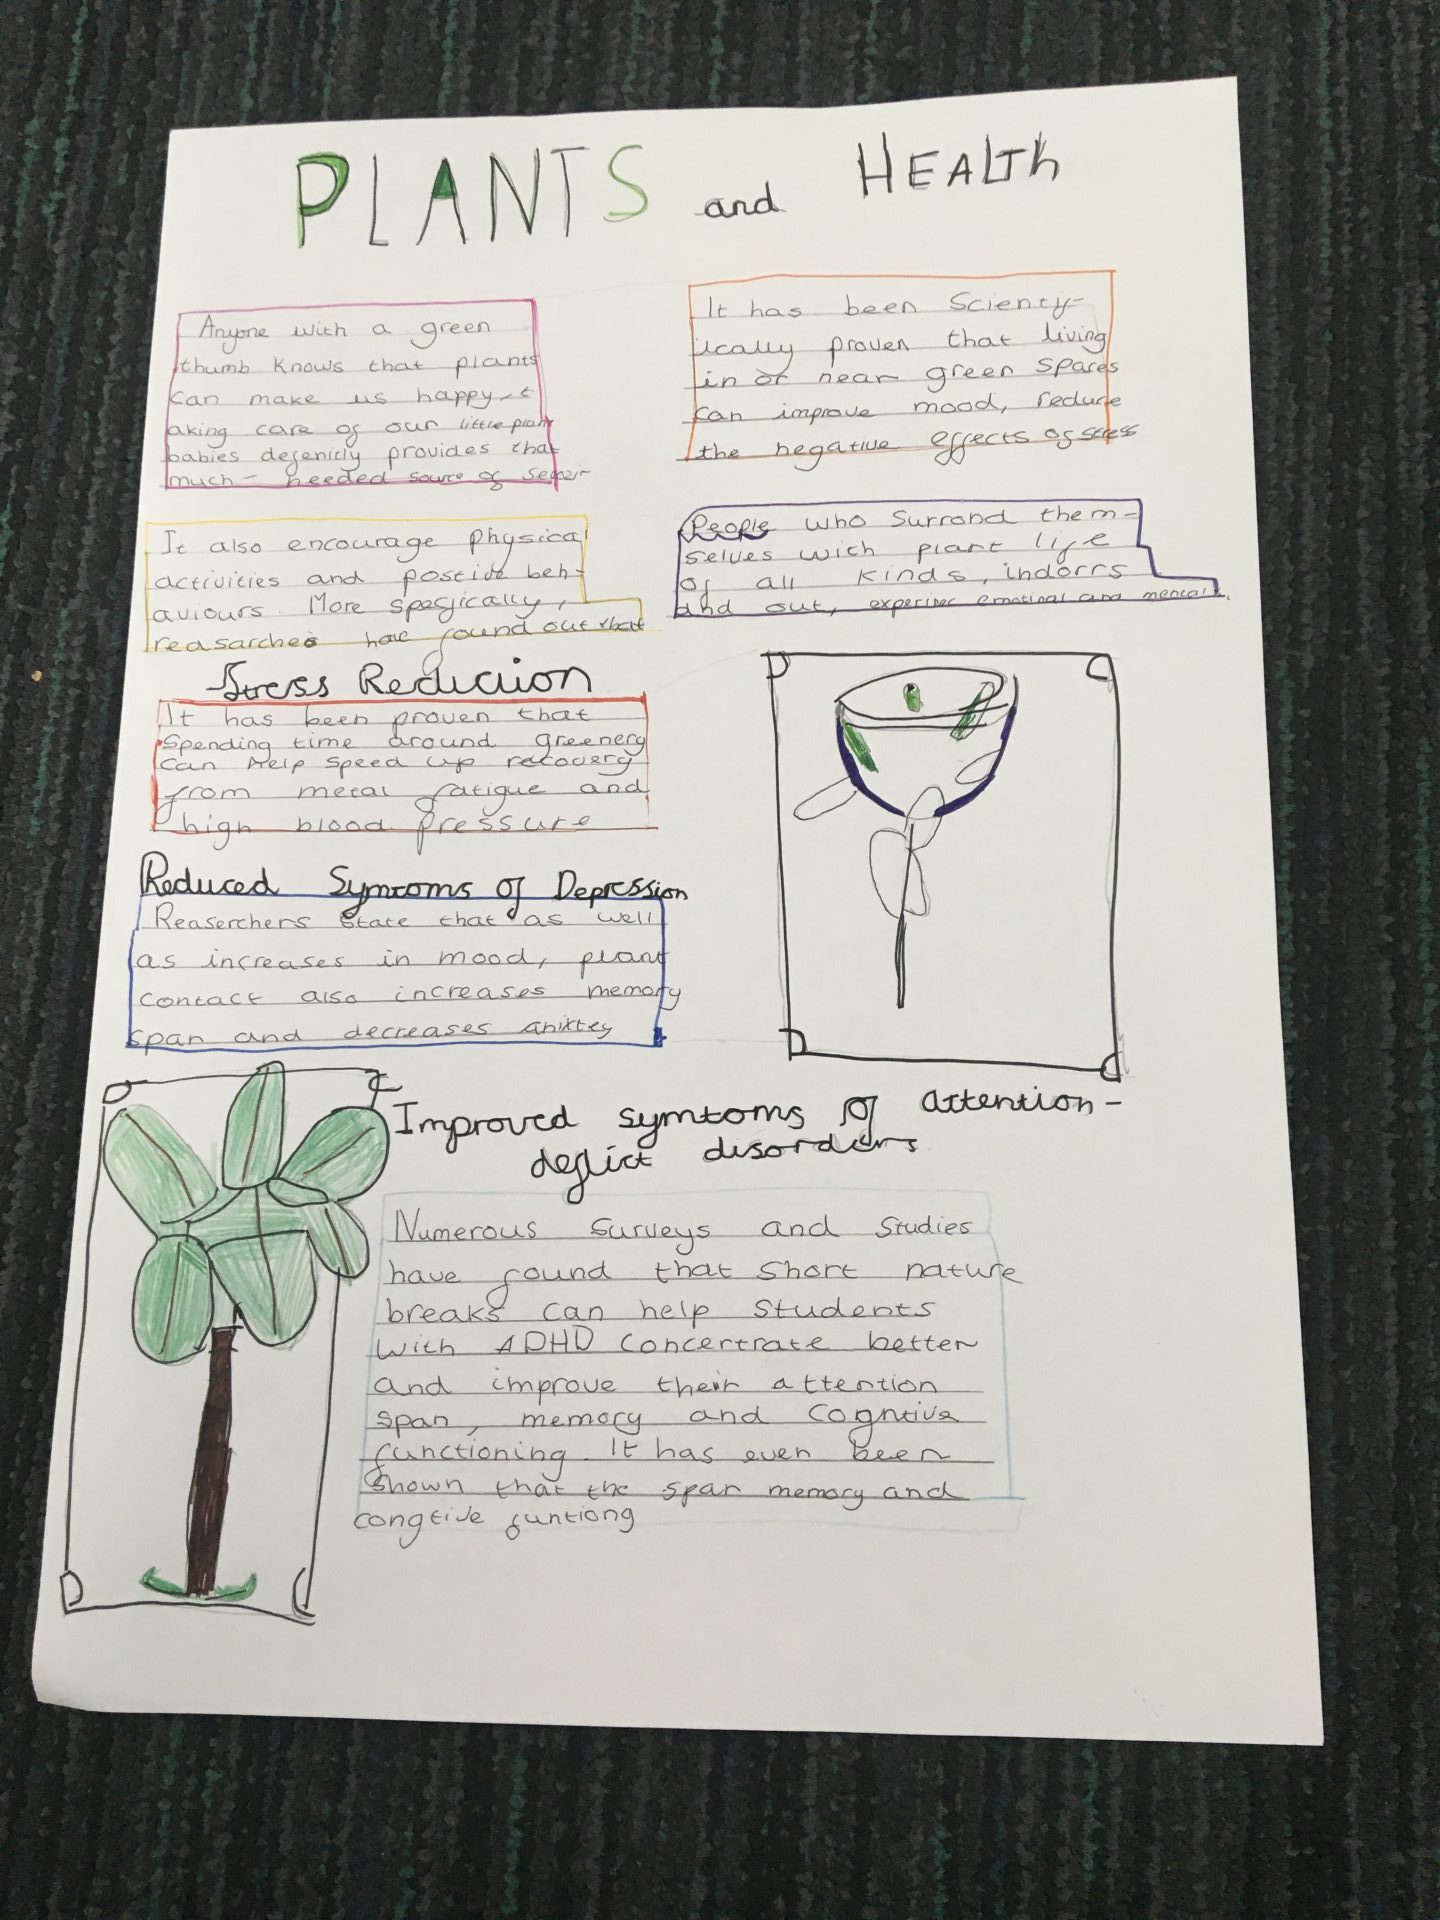 PLANTS and HEALTh
Anyone with a green
thumb knows that plants
can make us happy, t
aking care of our little plant
babies defenitly provides that
much- needed source of
It has been Scienty-
ically proven that living
in or near green spaces
can improve mood, reduce
the negative effects of stress
It also encourage physical
activities and postide beh-
aviours. More spegically,
reasarches have found out that
People who surrond them-
selves with plant life
of all kinds, indorrs
and out, experinec emotinal and mental.
Stress Reduction
It has been proven that
spending time around greenery
can help speed up recovery
from metal fatigue and
high blood pressure
Reduced Symtoms of Depression
Reaserchers state that as well
as increases in mood, plant
contact also increases memory
span and decreases anixtey
Improved symtoms of attention-
deficit disorders
Numerous surveys and studies
have found that short nature
breaks can help students
with ADHD concertrate better
and improve their attention
span, memory and cogntive
functioning. It has even been
shown that the span memory and
congtive funtiong